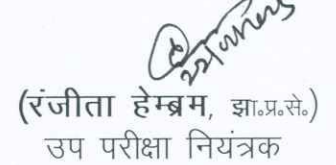 (रंजीता हेम्ब्रम, झा.प्र.से.)
उप परीक्षा नियंत्रक